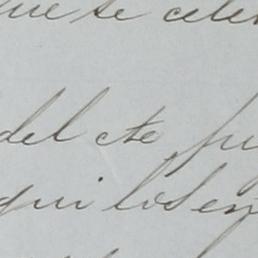 que se cele
del cte fu
qui los en